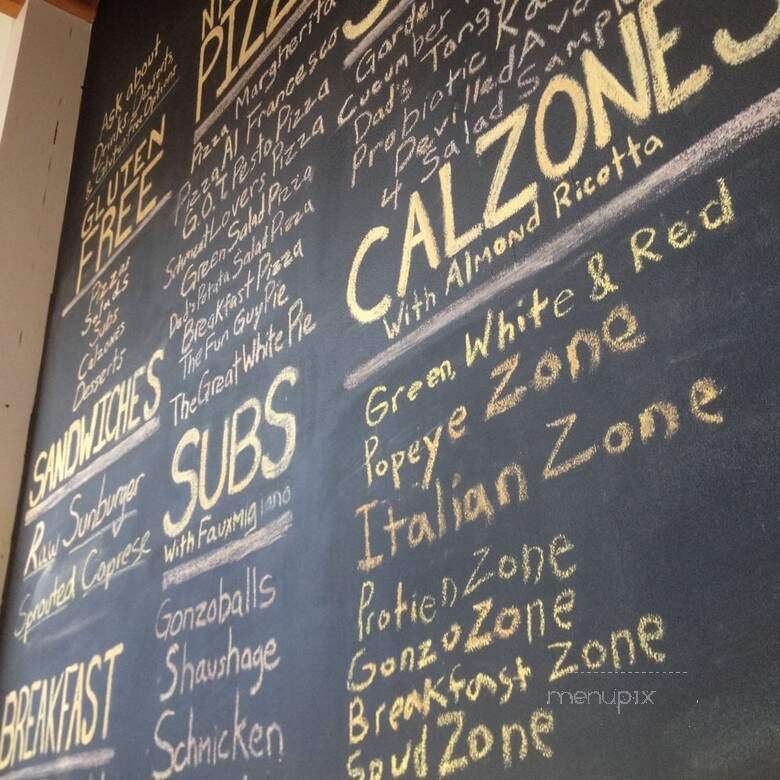 Ask about
Drinks, Desserts
& Gluten Free Options
GLUTEN
FREE
Pizzas
Salads
Subs
Calzones
Desserts
SANDWICHES
Raw Sunburger
Sprouted Coprese
BREAKFAST
PIZZ
Pizza Margherita
Pizza Al Francesco
G.O.T. Pesto Pizza
Schmeat Lovers Pizza
Green Salad Pizza
Dad's Potata Salad Pizza
Breakfast Pizza
The Fun Guy Pie
The Great White Pie
SUBS
With Fauxmigiano
Gonzoballs
Shaushage
Schmicken
Garden
Cucumber
Dad's Tang
Probiotic Ka
Devilled Avo
4 Salad Sampl
CALZONES
With Almond Ricotta
Green, White & Red
Popeye Zone
Italian Zone
Protien Zone
Gonzo Zone
Breakfast Zone
Spud Zone
menupix